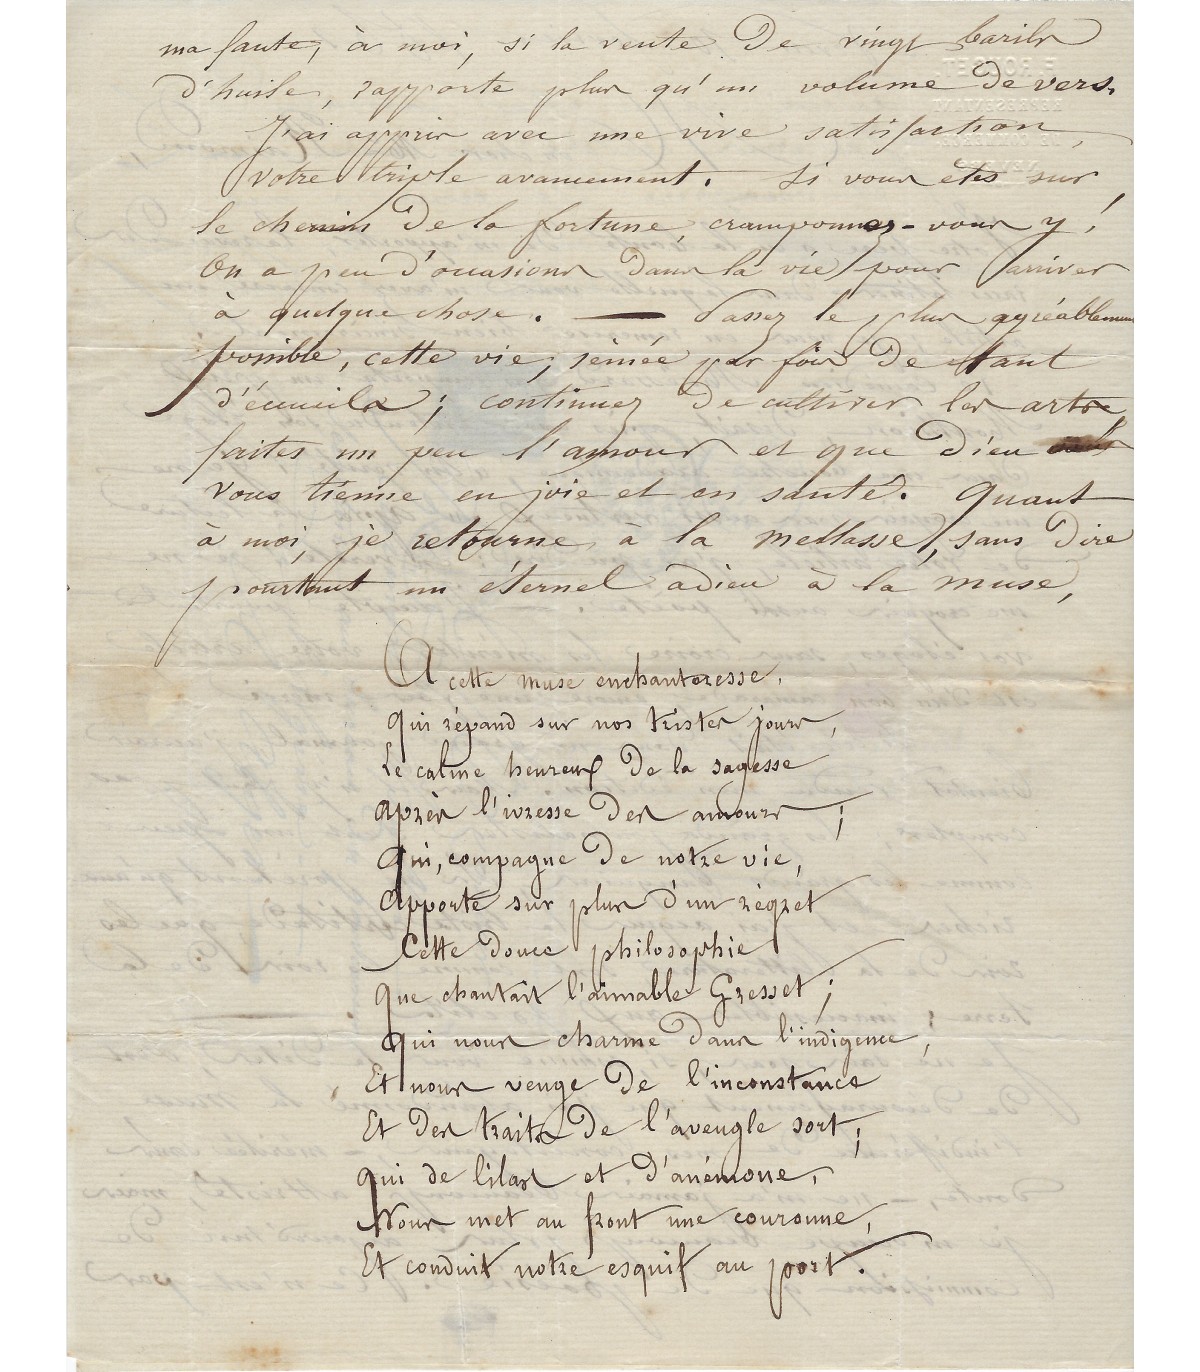 ma faute, à moi, si la vente de vingt barils
d'huile, rapporte plus qu'un volume de vers.
J'ai appris avec une vive satisfaction,
votre triple avancement. Si vous êtes sur
le chemin de la fortune, cramponnez-vous y!
On a peu d'occasions dans la vie pour arriver
à quelque chose. — Passez le plus agréablement
possible, cette vie, semée par fois de tant
d'écueils; continuez de cultiver les arts,
faites un peu l'amour et que Dieu
vous tienne en joie et en santé. Quant
à moi, je retourne à la mellasse, sans dire
pourtant un éternel adieu à la muse,
A cette muse enchanteresse,
Qui répand sur nos tristes jours,
Le calme heureux de la sagesse
Après l'ivresse des amours;
Qui, compagne de notre vie,
Apporte sur plus d'un régret
Cette douce philosophie
Que chantait l'aimable Gresset;
Qui nous charme dans l'indigence,
Et nous venge de l'inconstance
Et des traits de l'aveugle sort;
Qui de lilas et d'anémone,
Nous met au front une couronne,
Et conduit notre esquif au port.